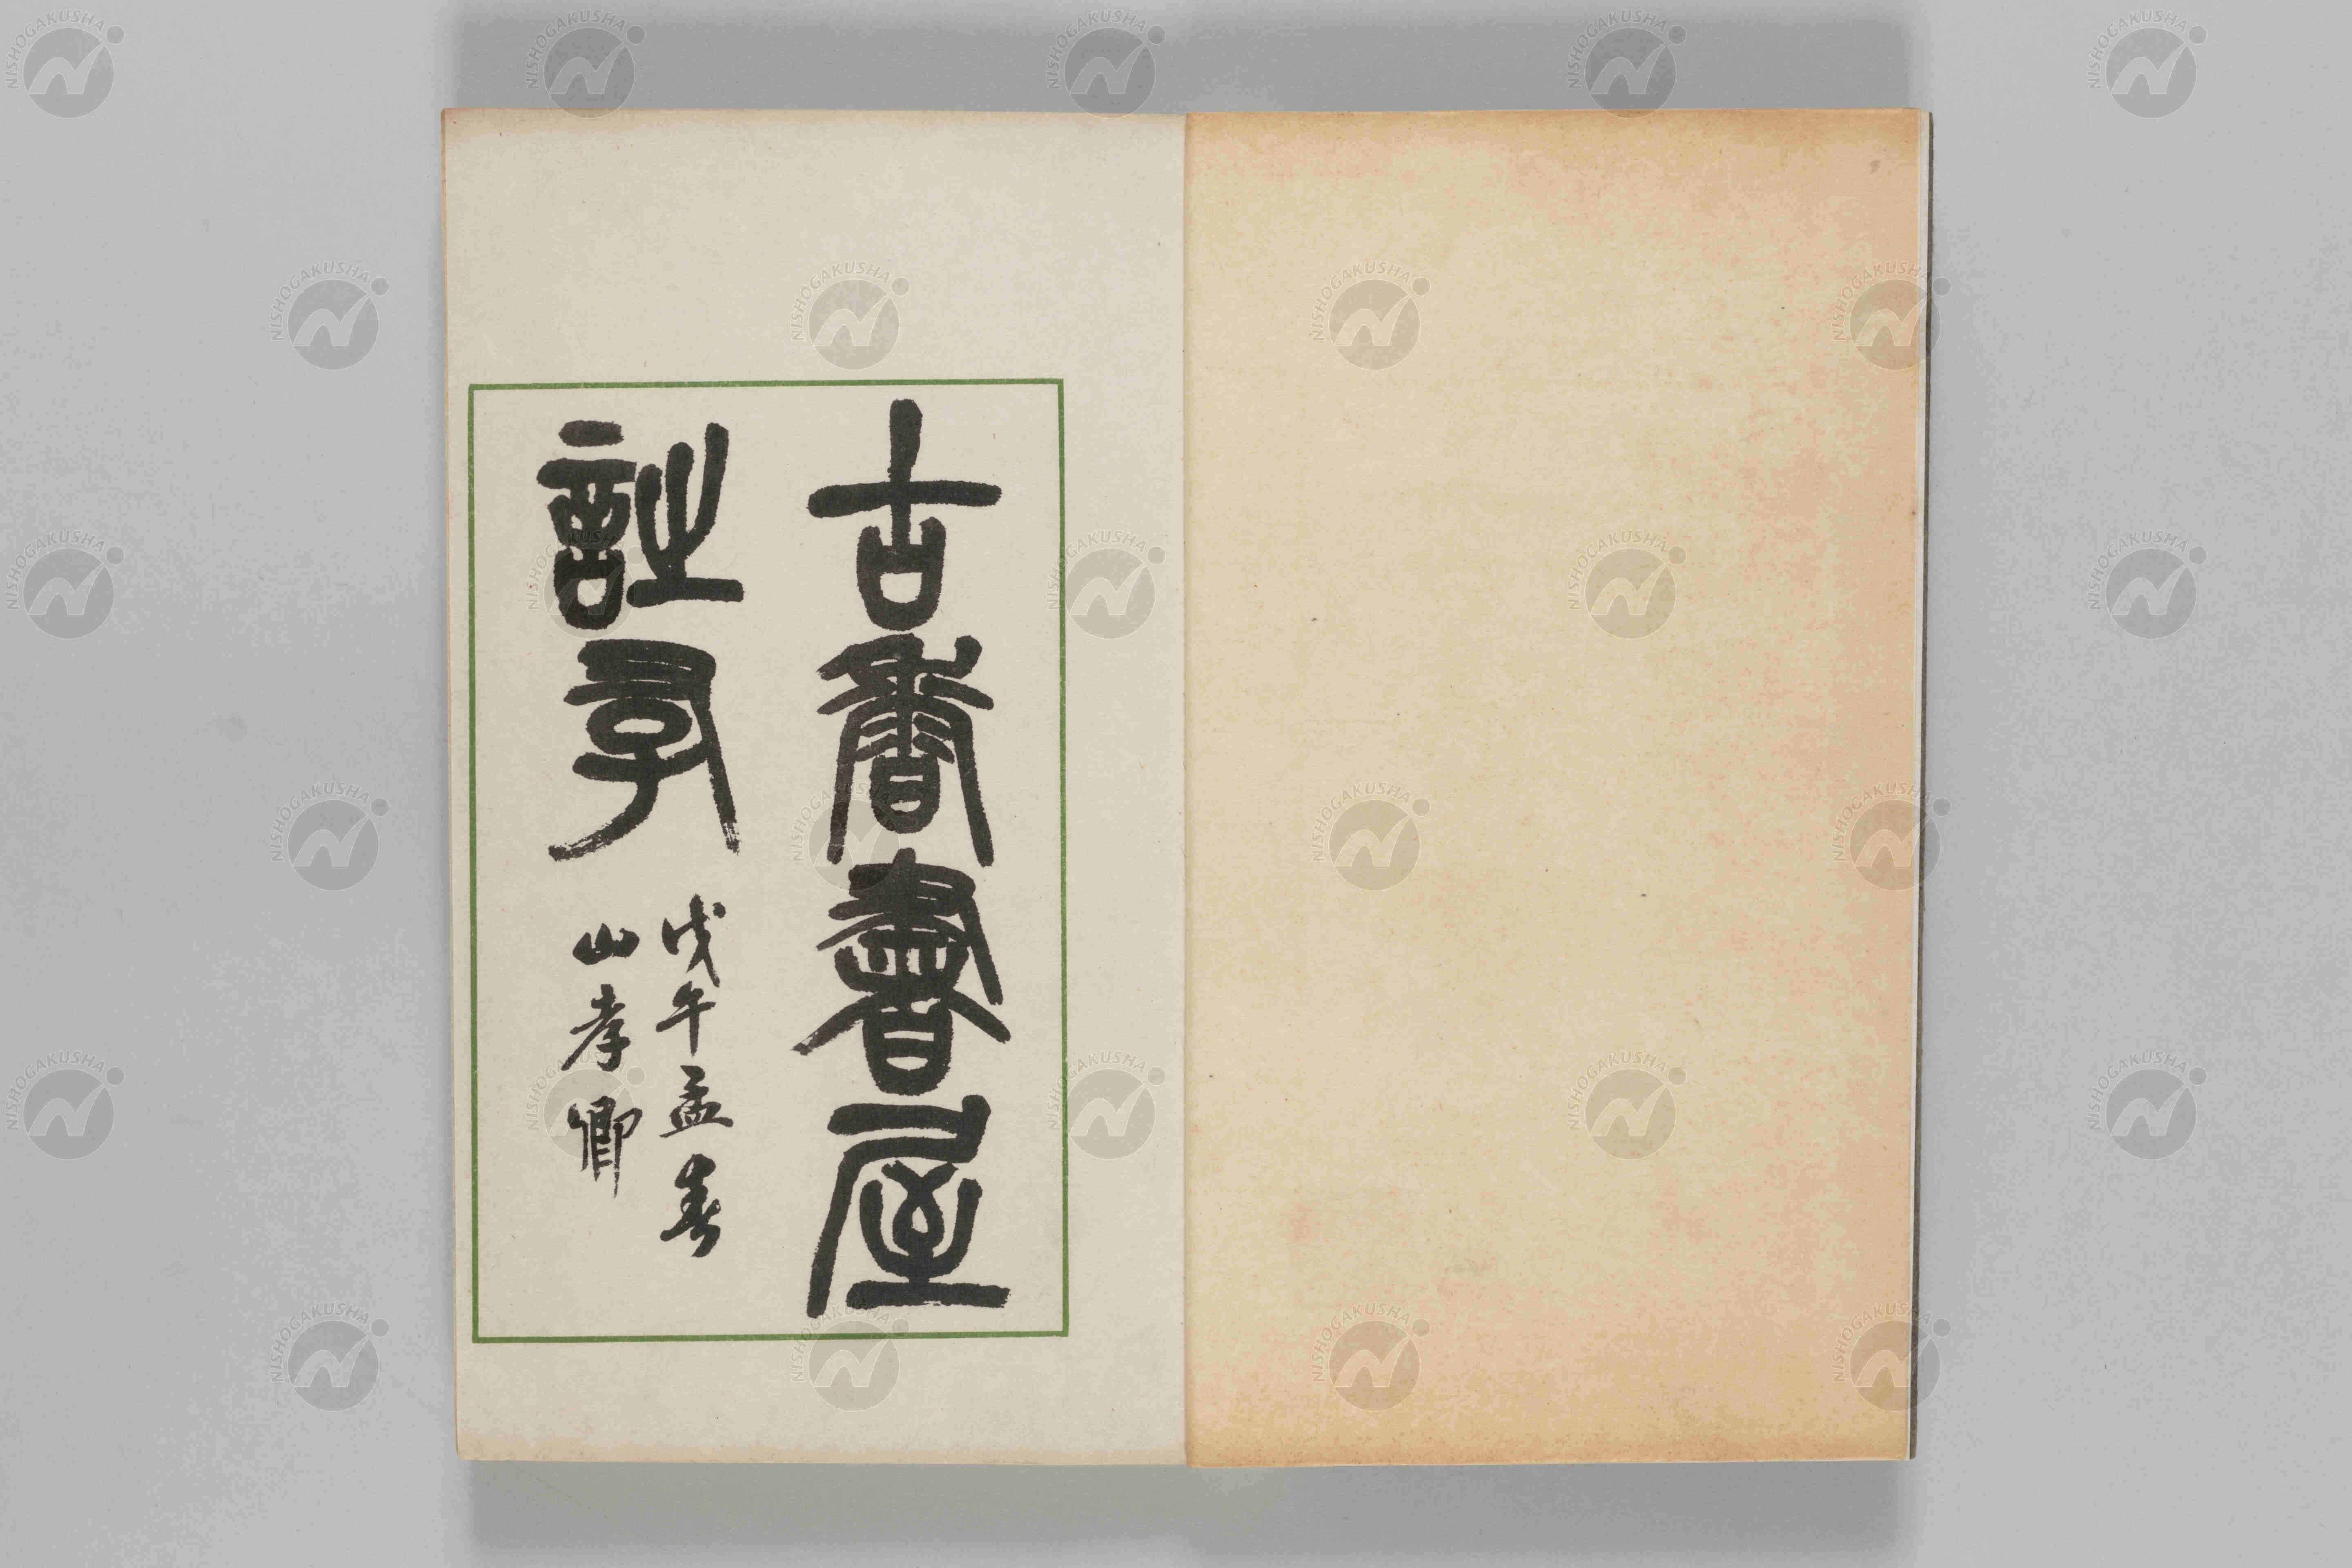 古香書屋
詩存
戊午孟春
山孝卿
NISHOGAKUSHA